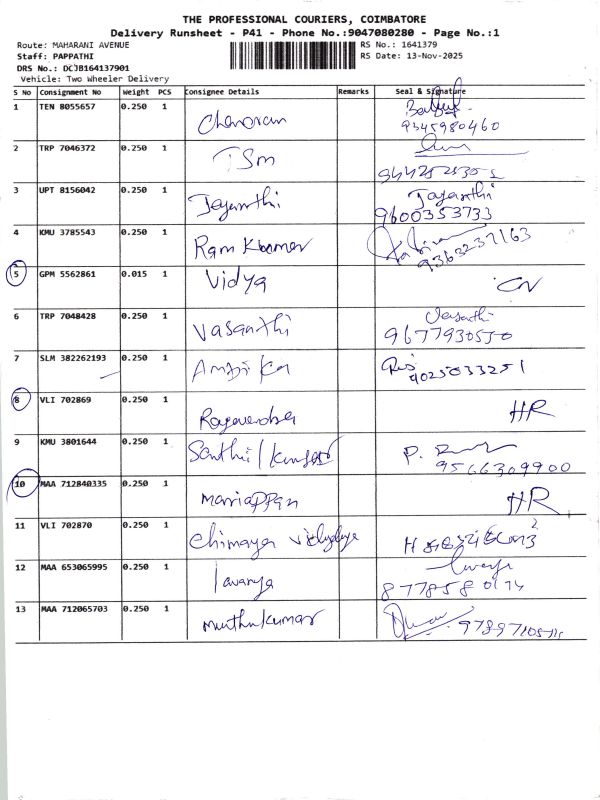 THE PROFESSIONAL COURIERS, COIMBATORE
Delivery Runsheet - P41 - Phone No.:9047080280 - Page No.:1
Route: MAHARANI AVENUE RS No.: 1641379
Staff: PAPPATHI RS Date: 13-Nov-2025
DRS No.: DCJB164137901
Vehicle: Two Wheeler Delivery
S No Consignment No Weight PCS Consignee Details Remarks Seal & Signature
1 TEN 8055657 0.250 1
9345980460
2 TRP 7046372 0.250 1 TSM
3 UPT 8156042 0.250 1 Jayanthi Jayanthi
9600353733
4 KMU 3785543 0.250 1 Ram Kumar
9363237163
5 GPM 5562861 0.015 1 Vidya
6 TRP 7048428 0.250 1 Vasanthi Vasanthi
9677930550
7 SLM 382262193 0.250 1 Ambika
9025033251
8 VLI 702869 0.250 1 Ragavendra HR
9 KMU 3801644 0.250 1 P.
9566309900
10 MAA 712840335 0.250 1 mariappan HR
11 VLI 702870 0.250 1 Chinmaya
12 MAA 653065995 0.250 1 lavanya
13 MAA 712065703 0.250 1 muthukumar